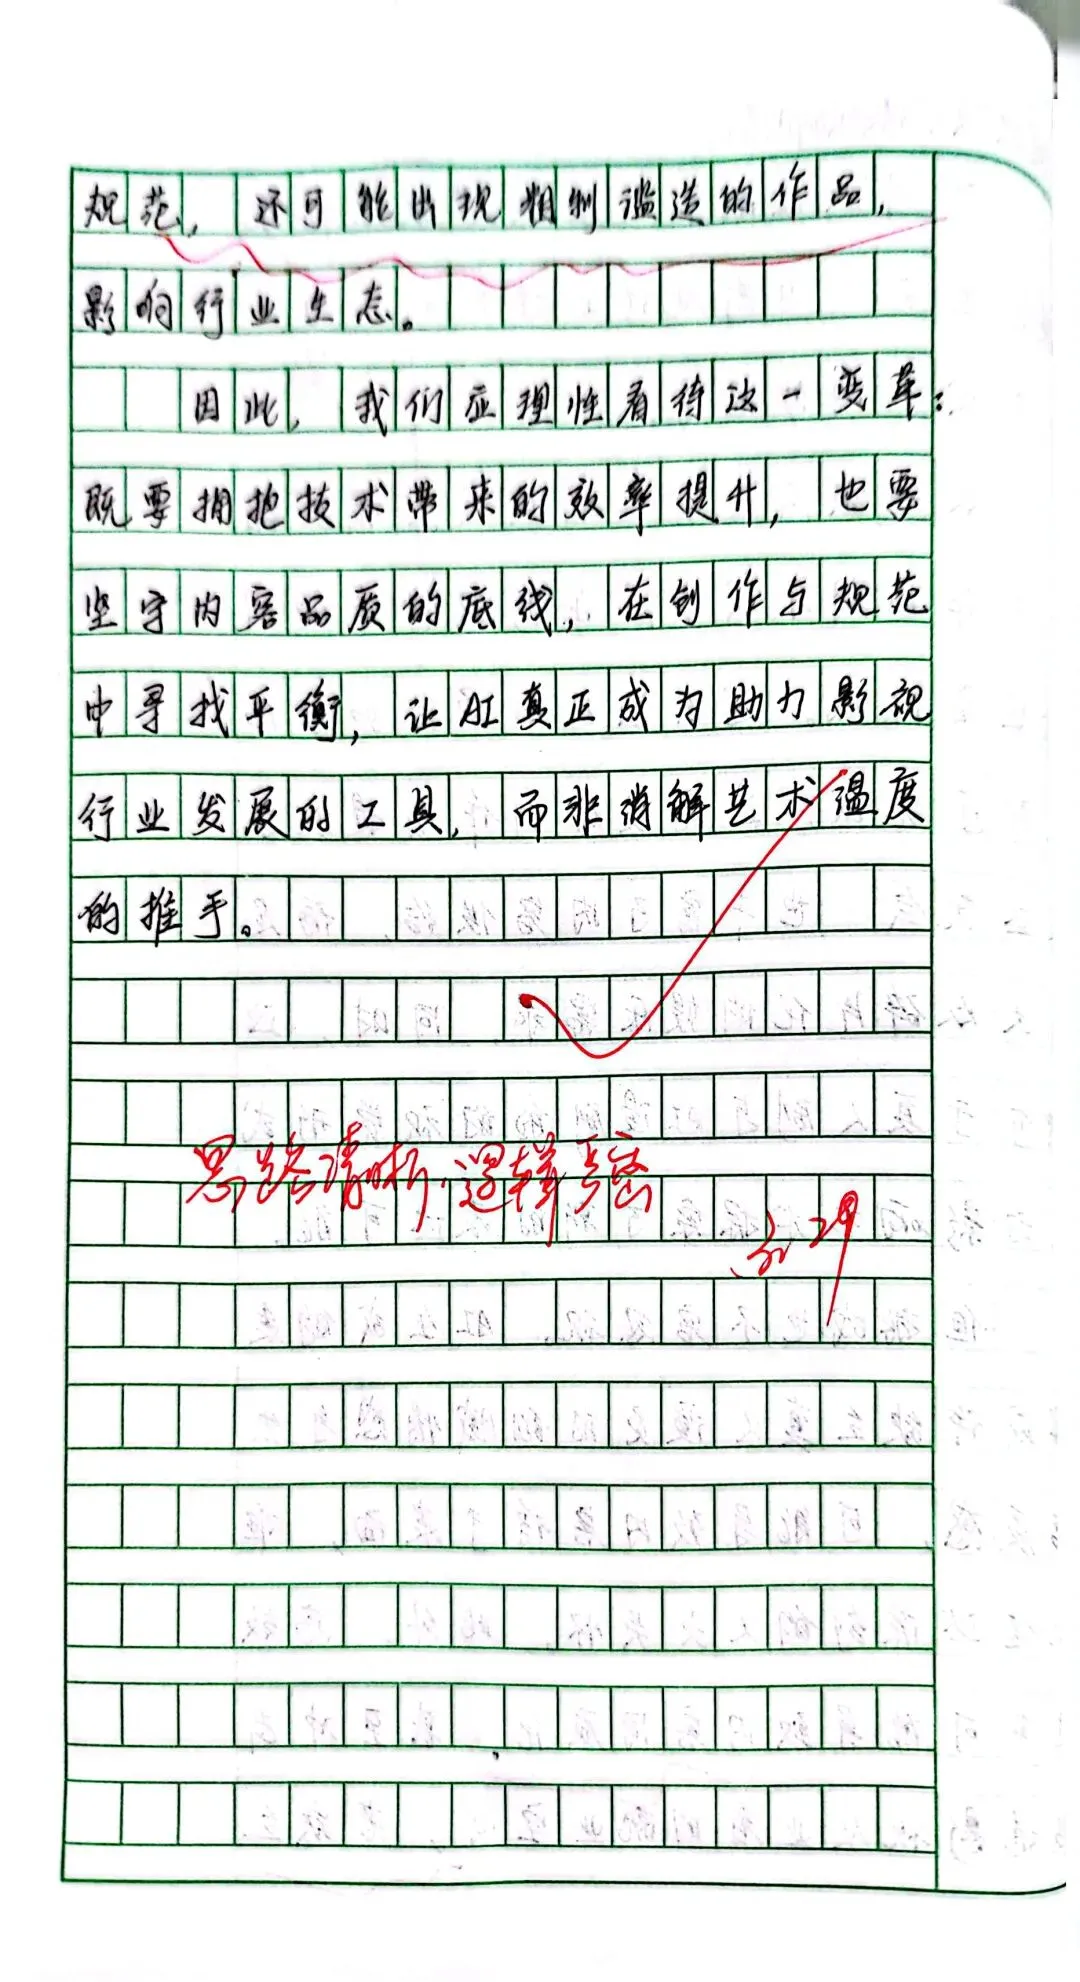 规范，还可能出现粗制滥造的作品，
影响行业生态。
因此，我们应理性看待这一变革：
既要拥抱技术带来的效率提升，也要
坚守内容品质的底线，在创作与规范
中寻找平衡，让AI真正成为助力影视
行业发展的工具，而非消解艺术温度
的推手。
思路清晰.逻辑严密